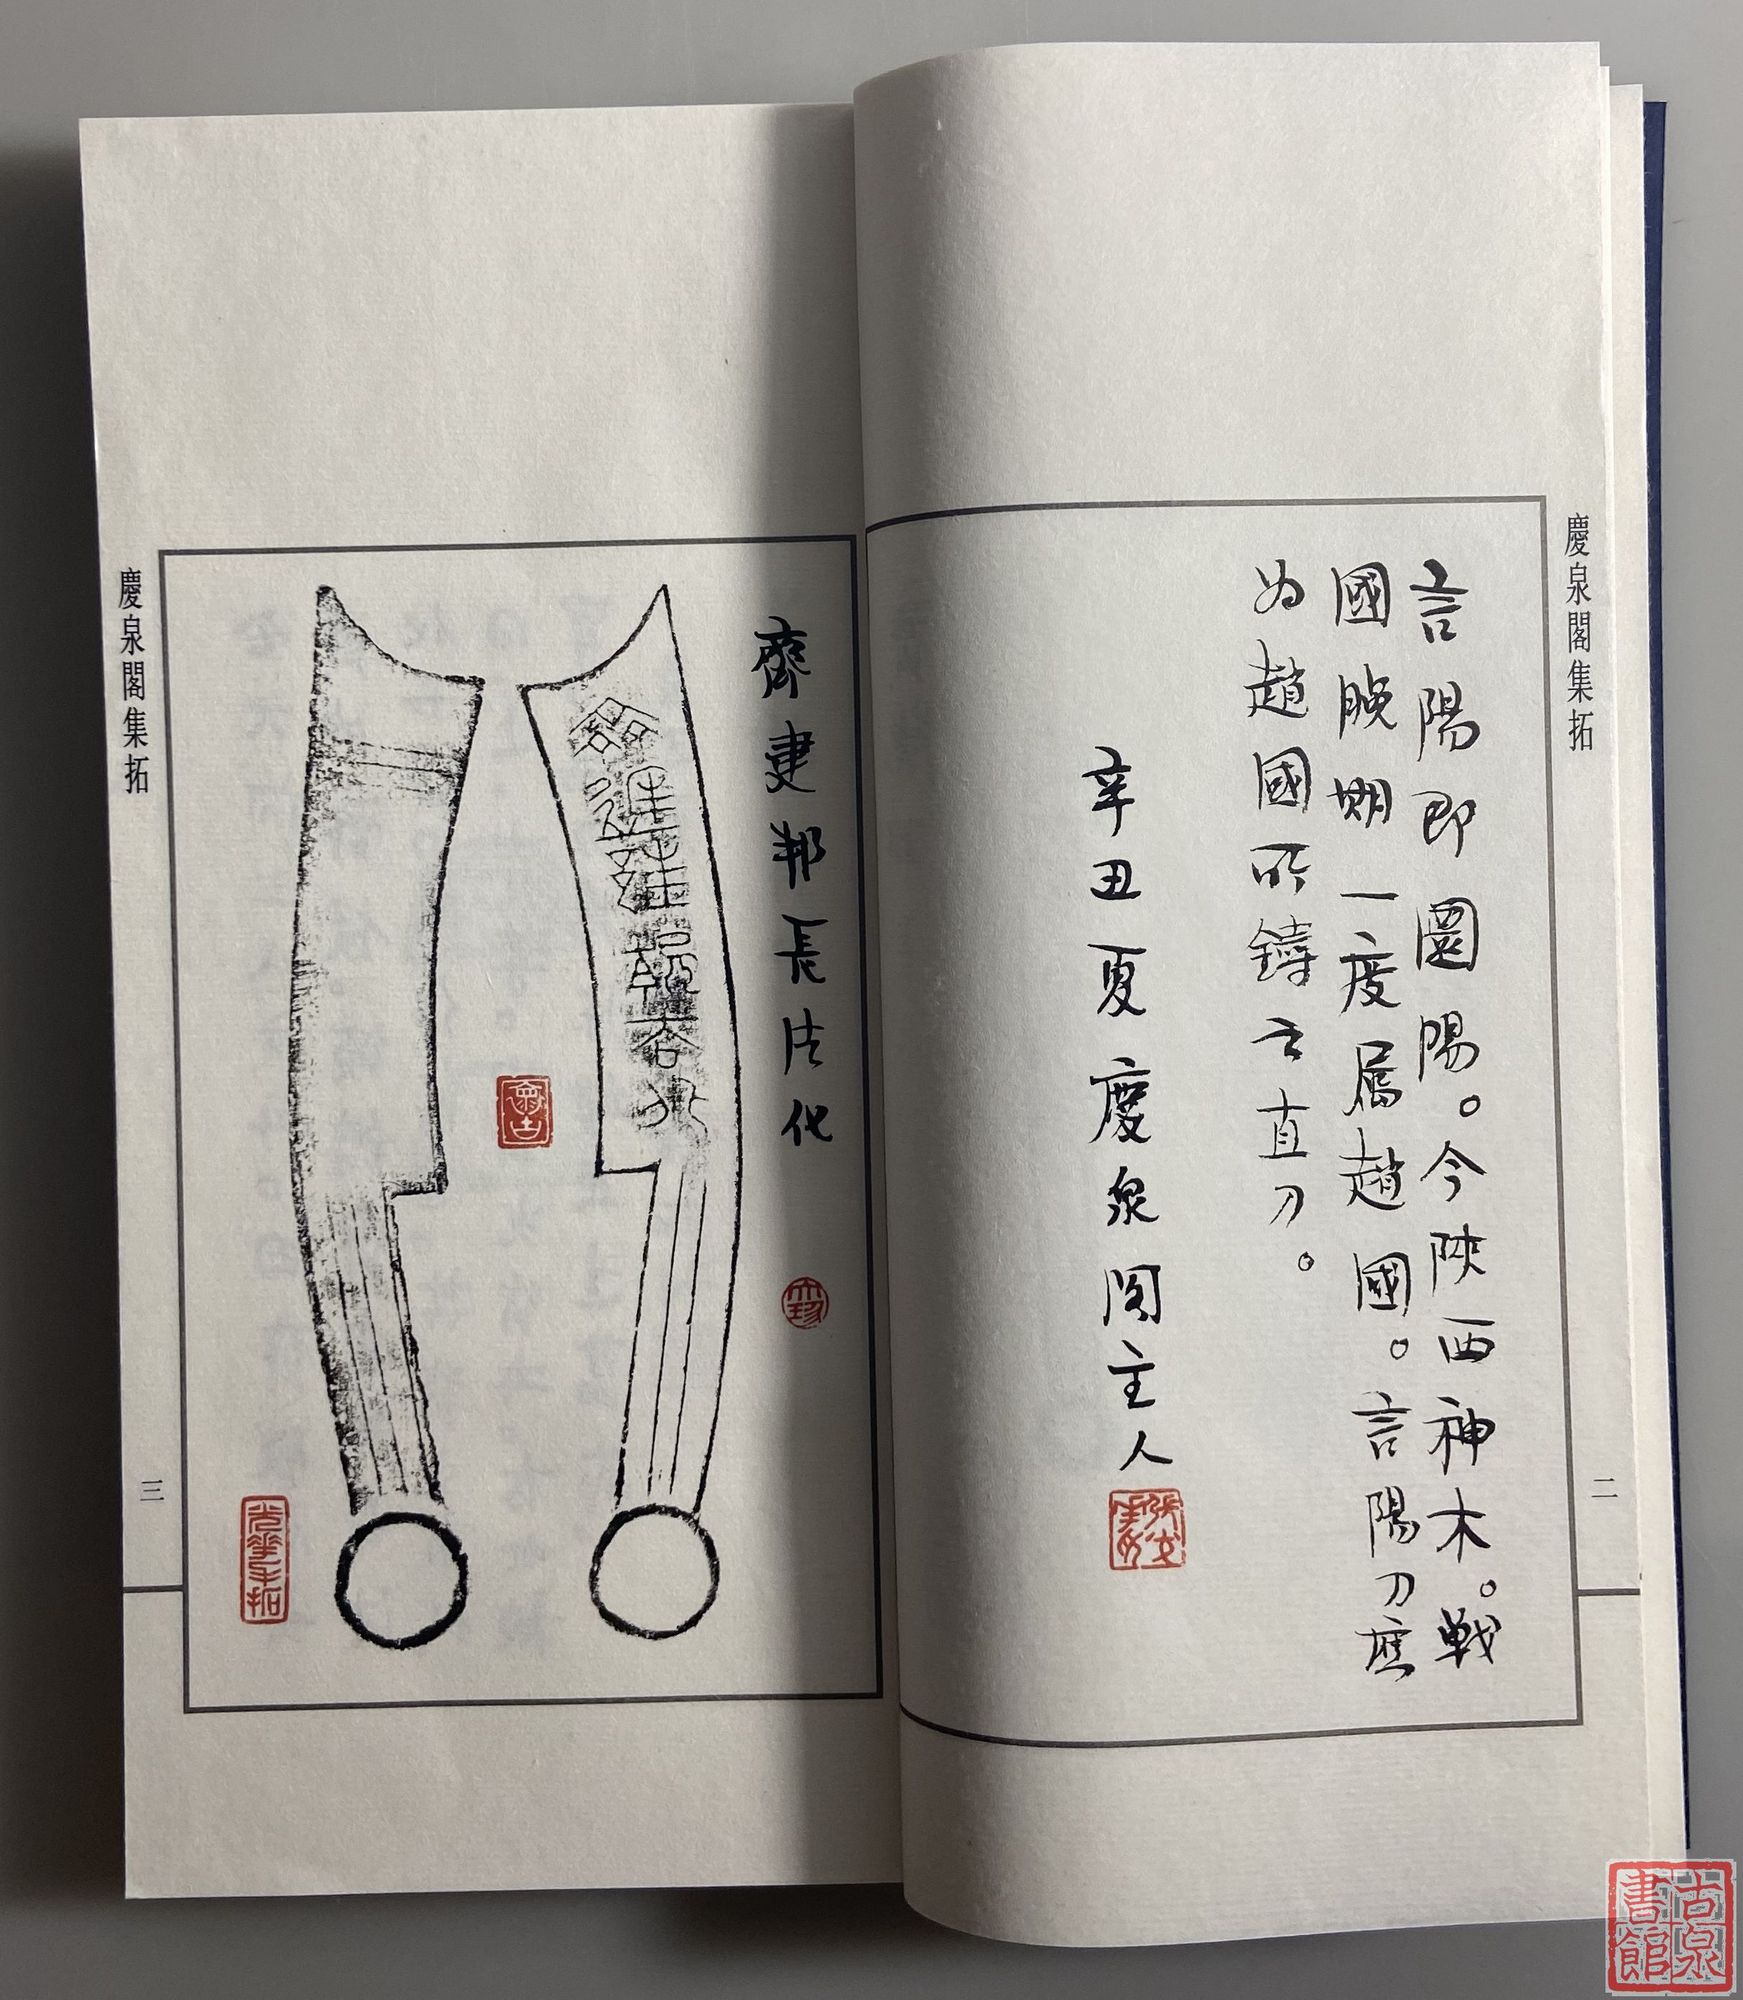 慶泉閣集拓
二
言陽即圜陽。今陝西神木。戰
國晚期一度屬趙國。言陽刀應
為趙國所鑄之直刀。
辛丑夏慶泉閣主人
齊建邦長法化
慶泉閣集拓
三
古泉
書館